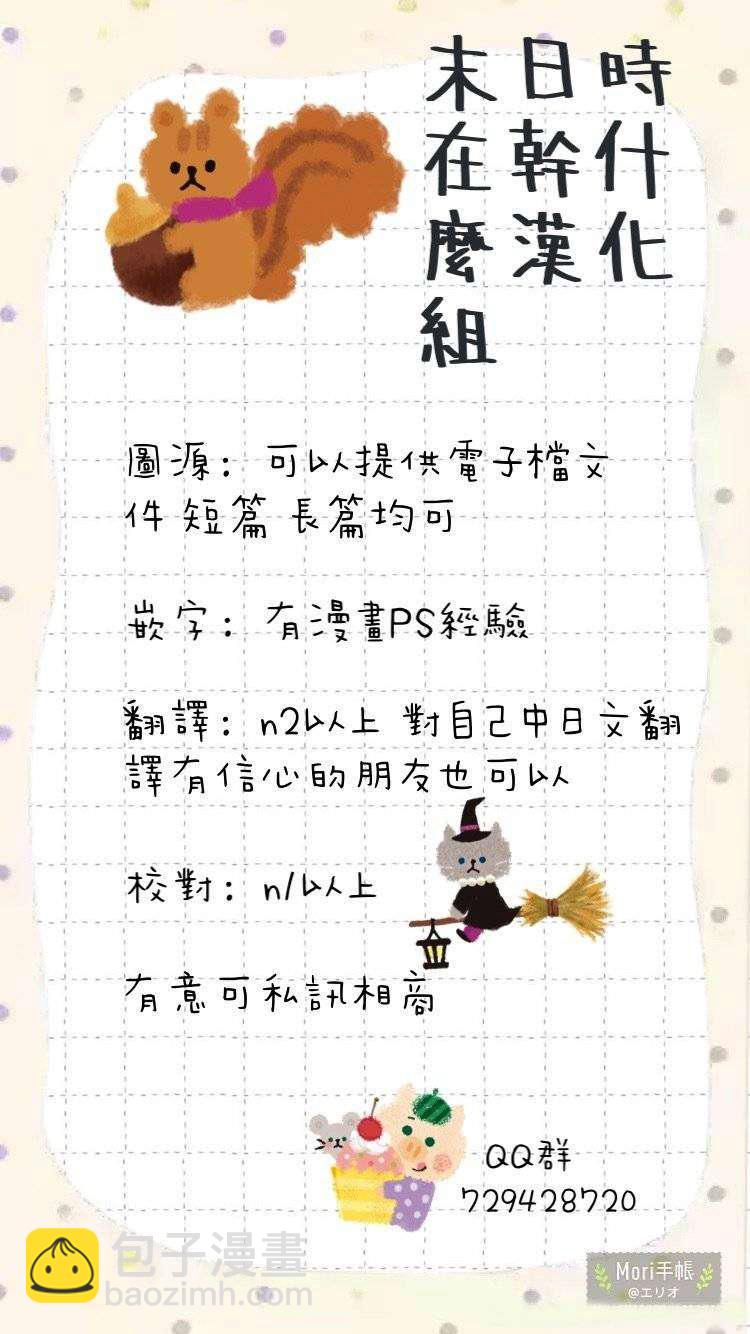 末日時
在幹什
麼漢化
組
圖源：可以提供電子檔文
件 短篇 長篇均可
嵌字：有漫畫PS經驗
翻譯：n2以人上 對自己中日文翻
譯有信心的朋友也可以
校對：n1以人上
有意可私訊相商
QQ群
729428720
包子漫畫
baozimh.com
Mori手帳
@エリオ